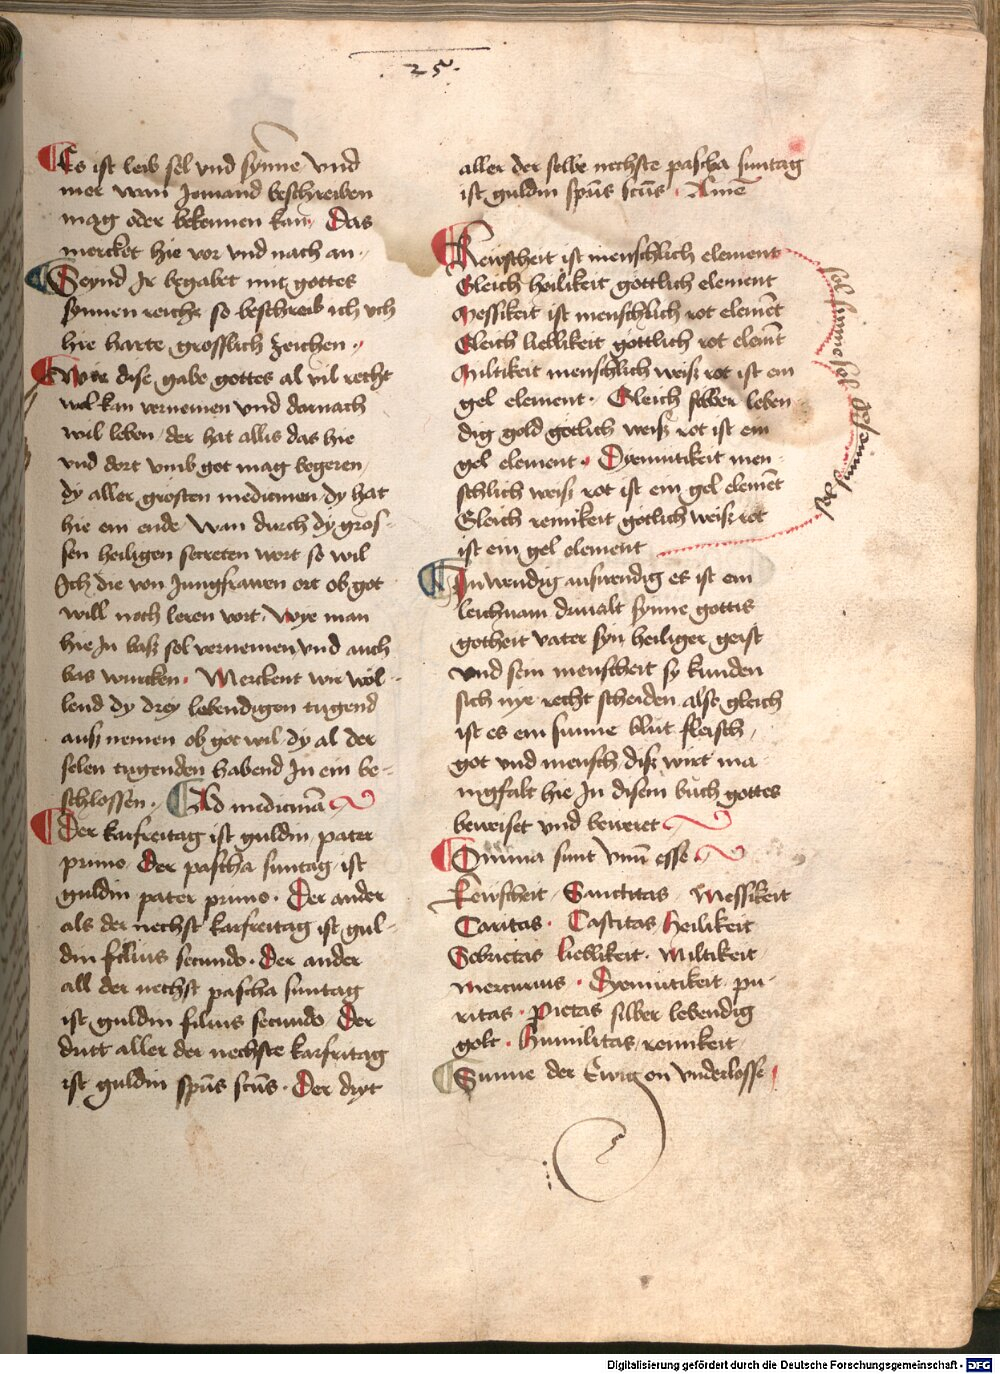 25.
Es ist leib sel vnd synne vnd
mer wan Jemand beschreiben
mag oder bekennen kan Das
mercket hie vor vnd nach an.
Seynd Ir begabet mit gottes
synnen reiche so beschreib ich vch
hie harte grosslich zeichen.
Wer dise gabe gottes al vil recht
wol kan vernemen vnd darnach
wil leben der hat allis das hie
vnd dort vmb got mag begeren
dy aller grosten medicinen dy hat
hie ein ende Wan durch dy gros-
sen heiligen secreten wort so wil
Ich die von Jungfrawen ort ob got
will noch leren vort. Wye man
hie In bass sol vernemen vnd auch
bas wurcken. Merckent wir wol-
lend dy drey lebendigen tugend
auss nemen ob got wil dy al der
selen tugenden habend In ein be-
schlossen. Ad medicinā
Der karfreitag ist guldin pater
primo. Der pascha suntag ist
guldin pater primo. Der ander
als der nechst karfreitag ist gul-
din filius secundo. Der ander
all der nechst pascha suntag
ist guldin filius secundo Der
dritt aller der nechste karfritag
ist guldin spūs scūs. Der dryt
aller der selbe nechste pascha suntag
ist guldin spūs scūs. Amē
Keuscheit ist menschlich element
Gleich heilikeit gottlich element
Messikeit ist menschlich rot elemēt
Gleich lieblikeit gottlich rot elemēt
Miltikeit menschlich weiss rot ist ein
gel element. Gleich silber leben
dig gold gotlich weiss rot ist ein
gel element. Dyemutikeit men-
schlich weiss rot ist ein gel elemēt
Gleich reinikeit gotlich weiss rot
ist ein gel element
sol sunne sol
sol sunne
Inwendig auswendig es ist ein
leichnam driualt synne gottis
gotheit vater syn heiliger geist
vnd sein menscheit sy kunden
sich nye recht scheiden also gleich
ist es ein sunne blut fleisch,
got vnd mensch diss wirt ma-
nigfalt hie In disem buch gottes
beweiset vnd beweret
Omnia sunt vnū esse
Keuscheit. Sanctitas. Messikeit
Caritas. Castitas Heilikeit
Sobrietas lieblikeit. Miltikeit
Mercurius. Dyemutikeit pu-
ritas. Pietas silber lebendig
golt. Humilitas reinikeit
Sunne der Ewig on vnderlosse
Digitalisierung gefördert durch die Deutsche Forschungsgemeinschaft - DFG